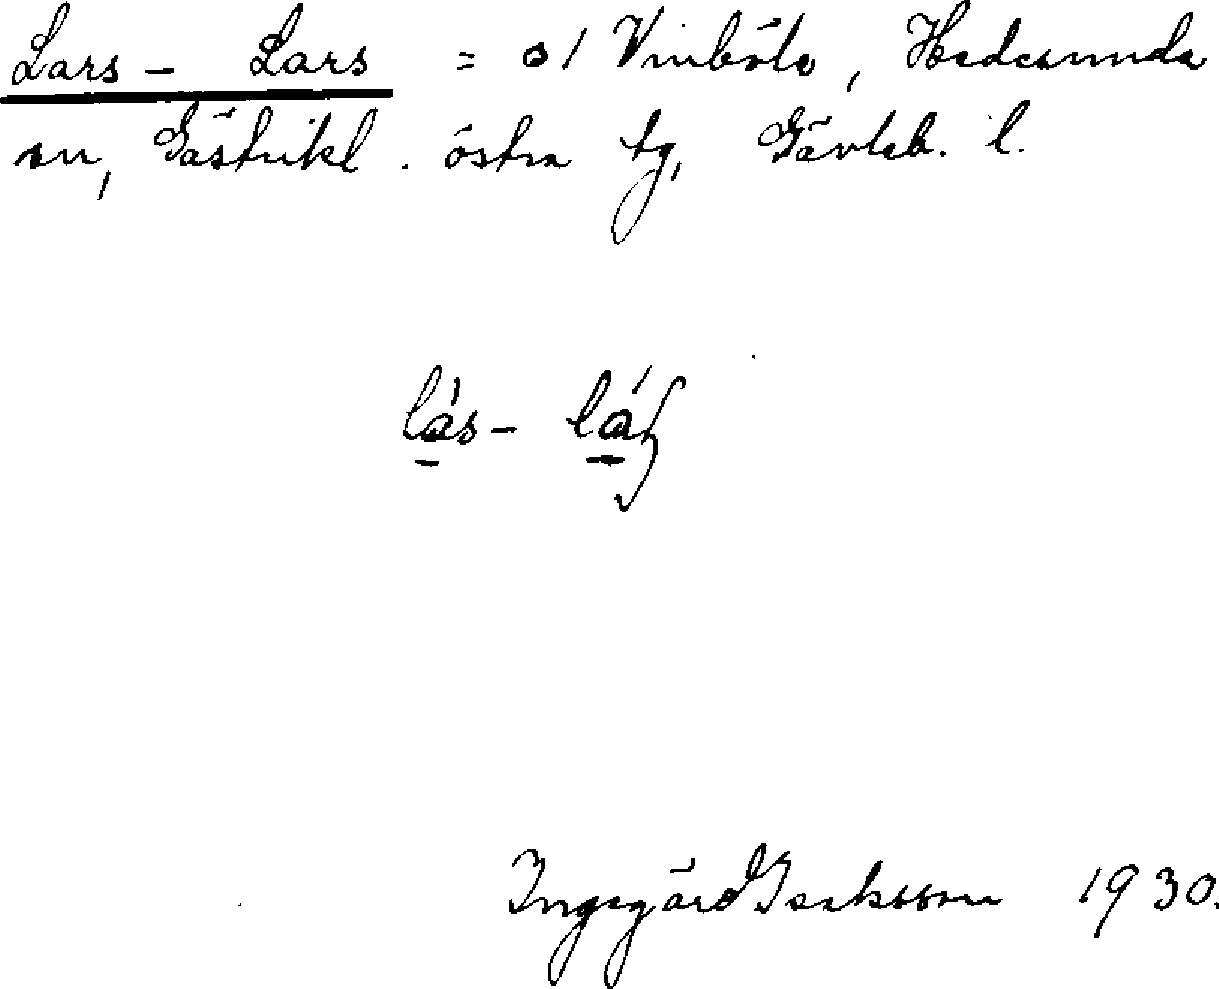 Lars - Lars = o/ Vinböle, Hedesunda
sn, Gästrikl. östra tg, Gävleb. l.
lás - láʂ
Ingegärd Isaksson 1930.